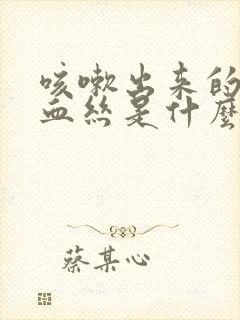 咳嗽出来的
血丝是什麼
蔡某心